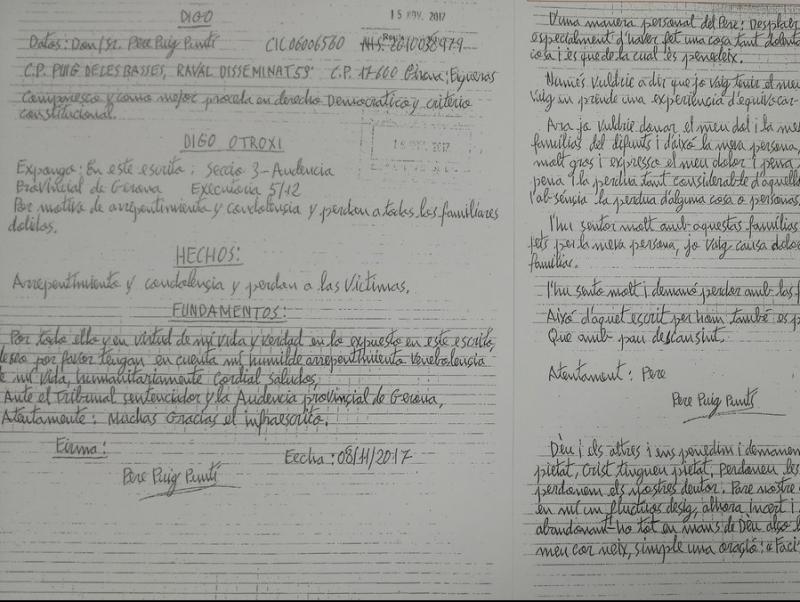 DIGO
15 NOV. 2017
Datos: Don/Sr. Pere Puig Puntí CIC06006560 2010038979
C.P. PUIG DE LES BASSES, RAVAL DISSEMINAT 59. C.P. 17600 Girona; Figueras
Comparesco y como mejor proceda en derecho Democratico y criterio
constitucional.
DIGO OTROXI
Expongo: En este escrito; Seccio 3-Audencia
Provincial de Gerona Execuioria 5/12
Por motivo de arrepentimiento y condolensia y perdon a todos los familiares
dolitos.
HECHOS:
Arrepentimiento y condolensia y perdon a las Victimas.
FUNDAMENTOS:
Por todo ello y en virtud de mi vida y verdad en lo expuesto en este escrito,
deseo por favor tengan en cuenta mi humilde arrepentimiento
de mi vida, humanitariamente cordial saludos,
Ante el Tribunal sentenciador y la Audencia provincial de Gerona,
Atentamente: Muchas Gracias el infraescrito.
Firma: Fecha: 08/11/2017
Pere Puig Puntí
D'una manera personal del Pere: Desplaer
especialment d'haver fet una cosa tant dolenta
cosa i és que de la cual és penedeix.
Només vuldric a dir que jo vaig tenir el meu
Vaig un prende una experiencia d'equivocar-
Ara jo vuldric donar el meu dol i la me
familias del difunts i d'aixó la meva persona,
molt gros i expresso el meu dolor i pena
pena i la perdua tant considerable d'aquell
l'absència la perdua d'alguna cosa o persona.
l'hu sentor molt amb aquestas famílias
fets per la meva persona, jo vaig causa dolor
familiar.
l'hu sento molt i demanó perdor amb las f
Aixó d'aquet escrit per hom també es p
Que amb pau descansint.
Atentament: Pere
Pere Puig Puntí
Dèu i els altres i ens penedim i demanem
pietat, Crist tingueu pietat, perdoneu les
perdonem els nostres deutor. Pare nostre
en mi un fluctuos desig, alhora incert i
abandonant-ho tot en mans de Dèu
meu cor neix, simple una oració: «Faci